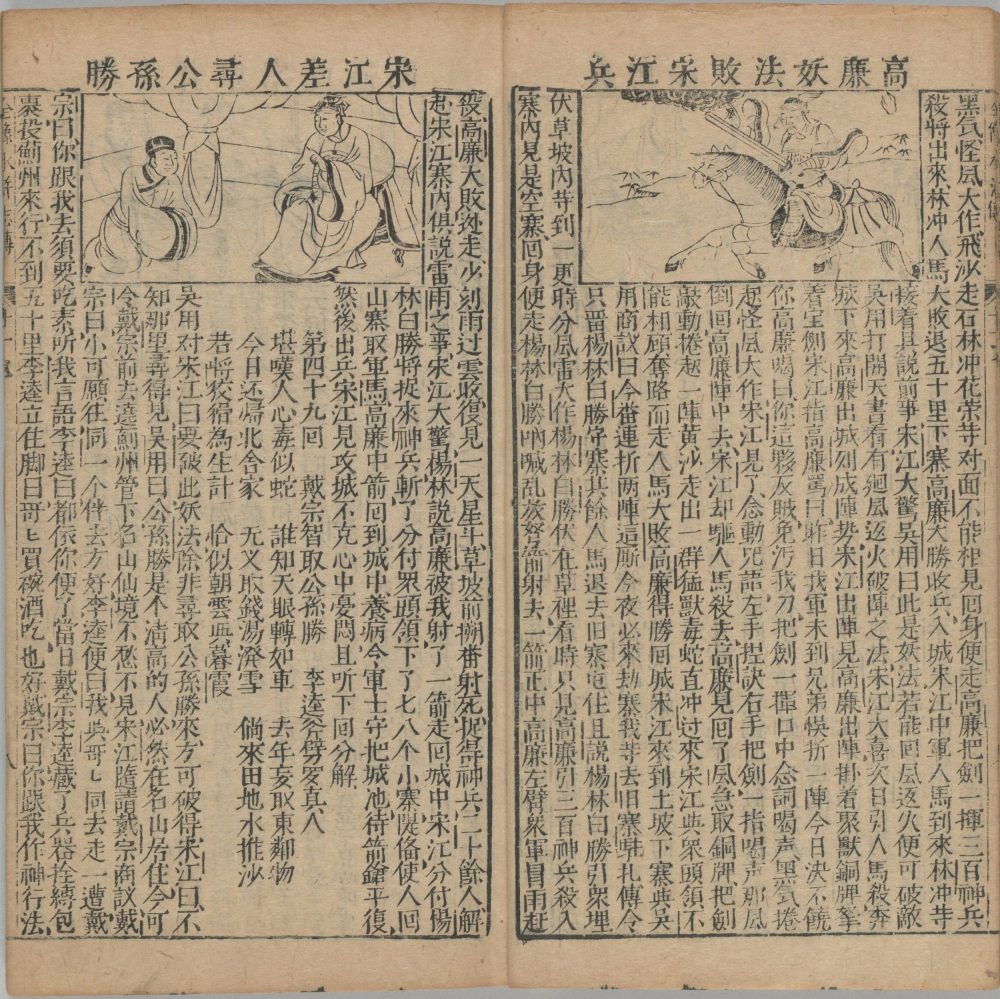 高廉妖法敗宋江兵
黑氣怪風大作飛沙走石林冲花荣等对面不能相見回身便走高廉把劍一揮三百神兵
殺將出來林冲人馬大敗退五十里下寨高廉大勝收兵入城宋江中軍人馬到來林冲等
接着且説前事宋江大驚吳用曰此是妖法若能回風返火便可破敵
吳用打開天書看有廻風返火破陣之法宋江大喜次日引人馬殺奔
城下來高廉出城列成陣势宋江出陣見高廉出陣掛着聚獸銅牌拏
着宝劍宋江指高廉罵曰昨日我軍未到兄弟悞折一陣今日決不饒
你高廉喝曰你這夥反賊免汚我刀把劍一揮口中念詞喝声黑氣捲
起怪風大作宋江見了念動咒語左手捏訣右手把劍一指喝声那風
倒回高廉陣中去宋江却驅人馬殺去高廉見回了風急取銅牌把劍
敲動捲起一陣黄沙走出一群猛獸毒蛇直冲过來宋江与衆頭領不
能相顧奪路而走人馬大敗高廉得勝回城宋江來到土坡下寨與吳
用商议曰今畨連折两陣這厮今夜必來劫寨我等去旧寨駐扎傳令
只畱楊林白勝守寨其餘人馬退去旧寨屯住且説楊林白勝引衆埋
伏草坡内等到一更時分風雷大作楊林白勝伏在草裡看時只見高廉引三百神兵殺入
寨内見是空寨回身便走楊林白勝吶喊乱放弩箭射去一箭正中高廉左臂衆軍冒雨赶
宋江差人尋公孫勝
殺高廉大敗迯走少刻雨过雲收復見一天星斗草坡前搠畨射死捉得神兵二十餘人解
起宋江寨内俱説雷雨之事宋江大驚楊林説高廉被我射了一箭走回城中宋江分付楊
林白勝將捉來神兵斬了分付眾頭領下了七八个小寨隄俻使人回
山寨取軍馬高廉中箭回到城中養病令軍士守把城池待箭鎗平復
然後出兵宋江見攻城不克心中憂悶且听下回分解
第四十九回 戴宗智取公孫勝 李逵斧劈罗真人
堪嘆人心毒似蛇 誰知天眼轉如車 去年妄取東鄰物
今日还歸北舍家 无义取錢湯潑雪 倘來田地水推沙
若將狡猾為生計 恰似朝雲与暮霞
吳用对宋江曰要破此妖法除非尋取公孫勝來方可破得宋江曰不
知那里尋得見吳用曰公孫勝是个清高的人必然在名山居住今可
令戴宗前去遶薊州管下名山仙境不愁不見宋江隨請戴宗商議戴
宗曰小可願往同一个伴去方好李逵便曰我与哥ヒ同去走一遭戴
宗曰你跟我去須要吃素听我言語李逵曰都依你便了當日戴宗李逵藏了兵器拴縛包
裹投薊州來行不到五十里李逵立住脚曰哥ヒ買碗酒吃也好戴宗曰你跟我作神行法